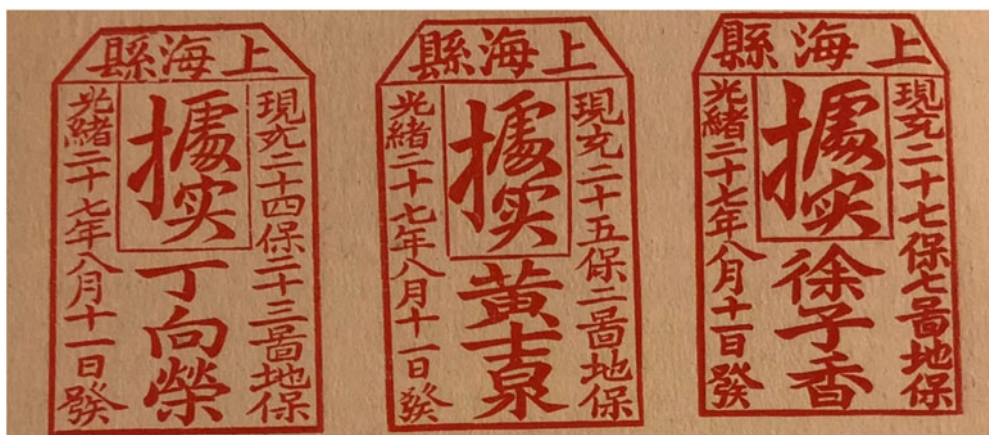 上海縣
現充二十四保二十三啚地保
據实
丁向榮
光緒二十七年八月十一日發
上海縣
現充二十五保二啚地保
據实
黃吉泉
光緒二十七年八月十一日發
上海縣
現充二十七保七啚地保
據实
徐子香
光緒二十七年八月十一日發